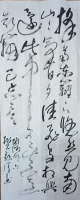 採菊東籬下悠然見南
山山氣日夕佳飛鳥相與
還此中有真意
欲辨已忘言